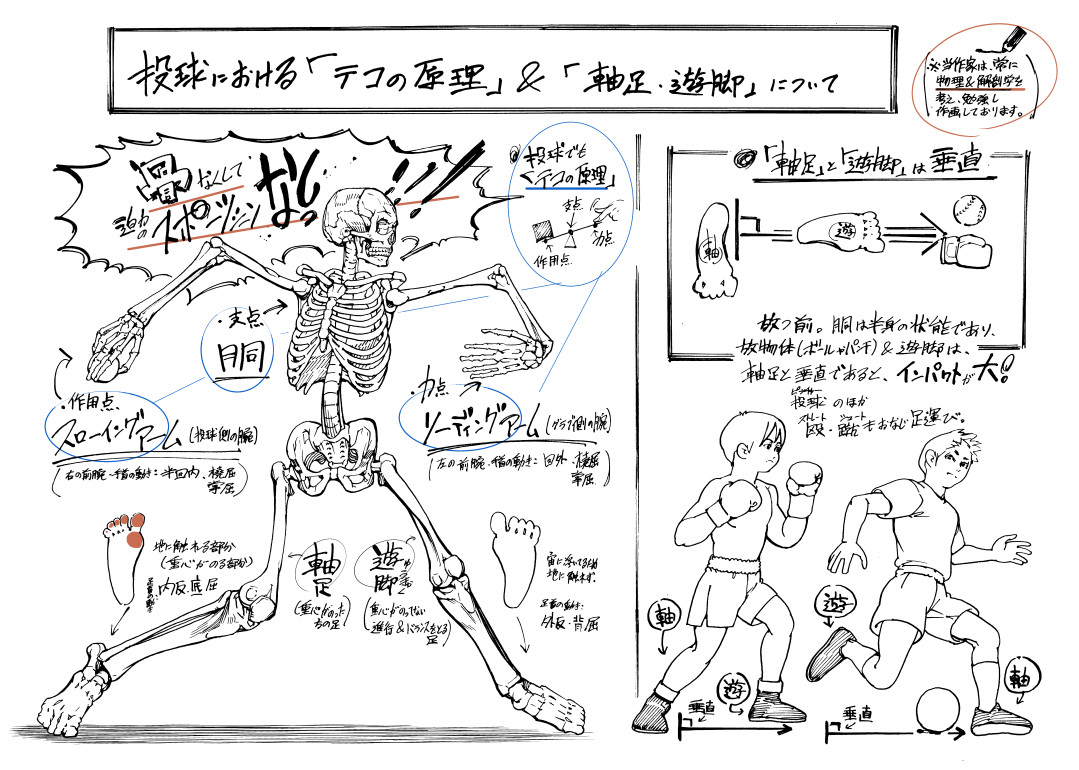 投球における「テコの原理」&「軸足・遊脚」について
※当作家は、常に
物理&解剖学を
考え、勉強し
作画しております。
渦なくして
迫力の
スポーツシーンなしっ!!!
◎投球でも
「テコの原理」
支点
力点
作用点
・支点
胴
・作用点
スローイングアーム(投球側の腕)
(右の前腕〜指の動き:半回内、橈屈
掌屈)
・力点
リーディングアーム(グラブ側の腕)
(左の前腕〜指の動き:回外・橈屈
掌屈)
地に触れる部分
(重心がのる部分)
内反、底屈
軸足
(重心がのった
方の足)
遊脚
(重心がのってない
進行&バランスをとる
足)
宙に浮いてるため
地に触れず。
足首の動き:
外反・背屈
◎「軸足」と「遊脚」は垂直
軸
遊
放つ前。胴は半身の状態であり、
放物体(ボールやパンチ)&遊脚は、
軸足と垂直であると、インパクトが大!
投球のほか
ストレート シュート
もおなじ足運び。
軸
遊
垂直
遊
軸
垂直